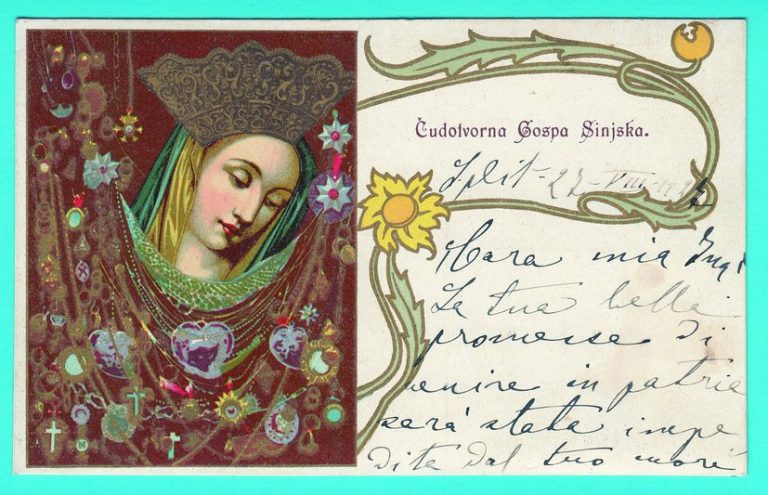 Čudotvorna Gospa Sinjska.
Split - 27 - VIII -
Cara mia
La tua bella
promesse di
venire in patria
sará stata impe
dita dal tuo more